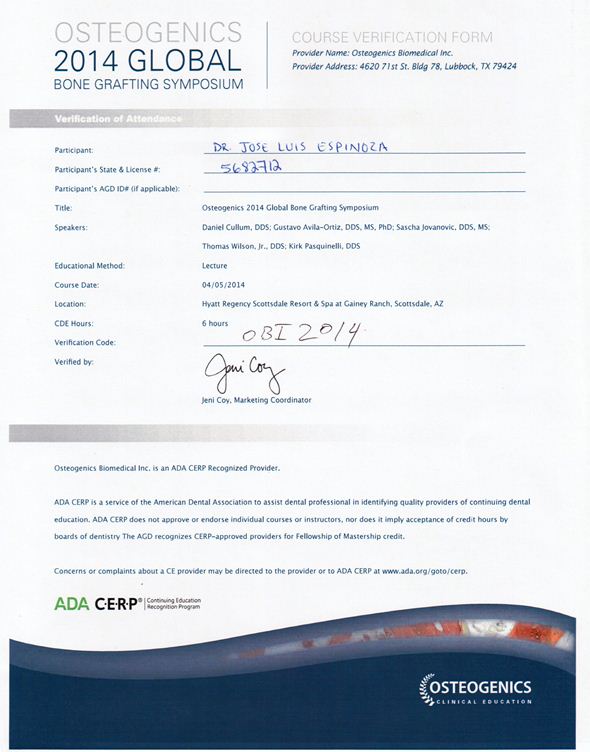 OSTEOGENICS
2014 GLOBAL
BONE GRAFTING SYMPOSIUM
COURSE VERIFICATION FORM
Provider Name: Osteogenics Biomedical Inc.
Provider Address: 4620 71st St. Bldg 78, Lubbock, TX 79424
Verification of Attendance
Participant: DR. JOSE LUIS ESPINOZA
Participant's State & License #: 5682712
Participant's AGD ID# (if applicable):
Title: Osteogenics 2014 Global Bone Grafting Symposium
Speakers: Daniel Cullum, DDS; Gustavo Avila-Ortiz, DDS, MS, PhD; Sascha Jovanovic, DDS, MS;
Thomas Wilson, Jr., DDS; Kirk Pasquinelli, DDS
Educational Method: Lecture
Course Date: 04/05/2014
Location: Hyatt Regency Scottsdale Resort & Spa at Gainey Ranch, Scottsdale, AZ
CDE Hours: 6 hours
Verification Code: OBI 2014
Verified by: Jeni Coy
Jeni Coy, Marketing Coordinator
Osteogenics Biomedical Inc. is an ADA CERP Recognized Provider.
ADA CERP is a service of the American Dental Association to assist dental professional in identifying quality providers of continuing dental
education. ADA CERP does not approve or endorse individual courses or instructors, nor does it imply acceptance of credit hours by
boards of dentistry The AGD recognizes CERP-approved providers for Fellowship of Mastership credit.
Concerns or complaints about a CE provider may be directed to the provider or to ADA CERP at www.ada.org/goto/cerp.
ADA C·E·R·P® Continuing Education
Recognition Program
OSTEOGENICS
CLINICAL EDUCATION